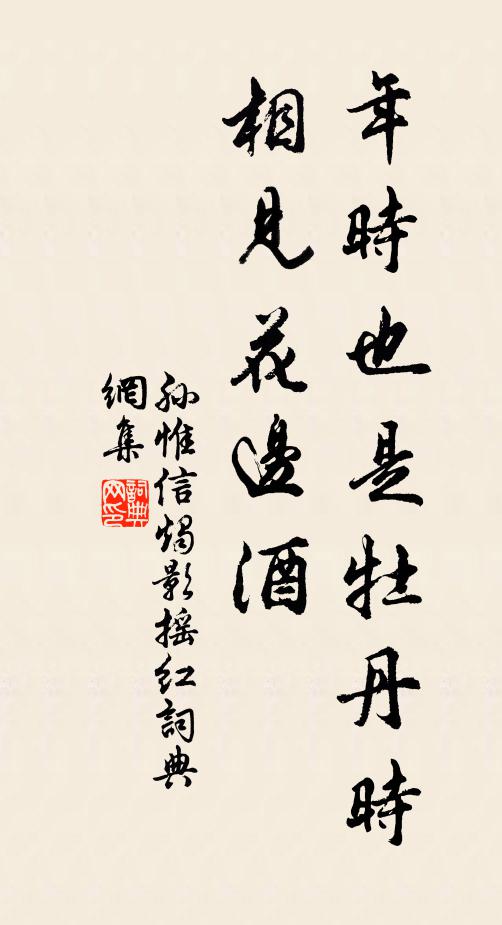 年時也是牡丹時
相見花邊酒
孫惟信燭影搖紅詞典
網集
詞典
网印